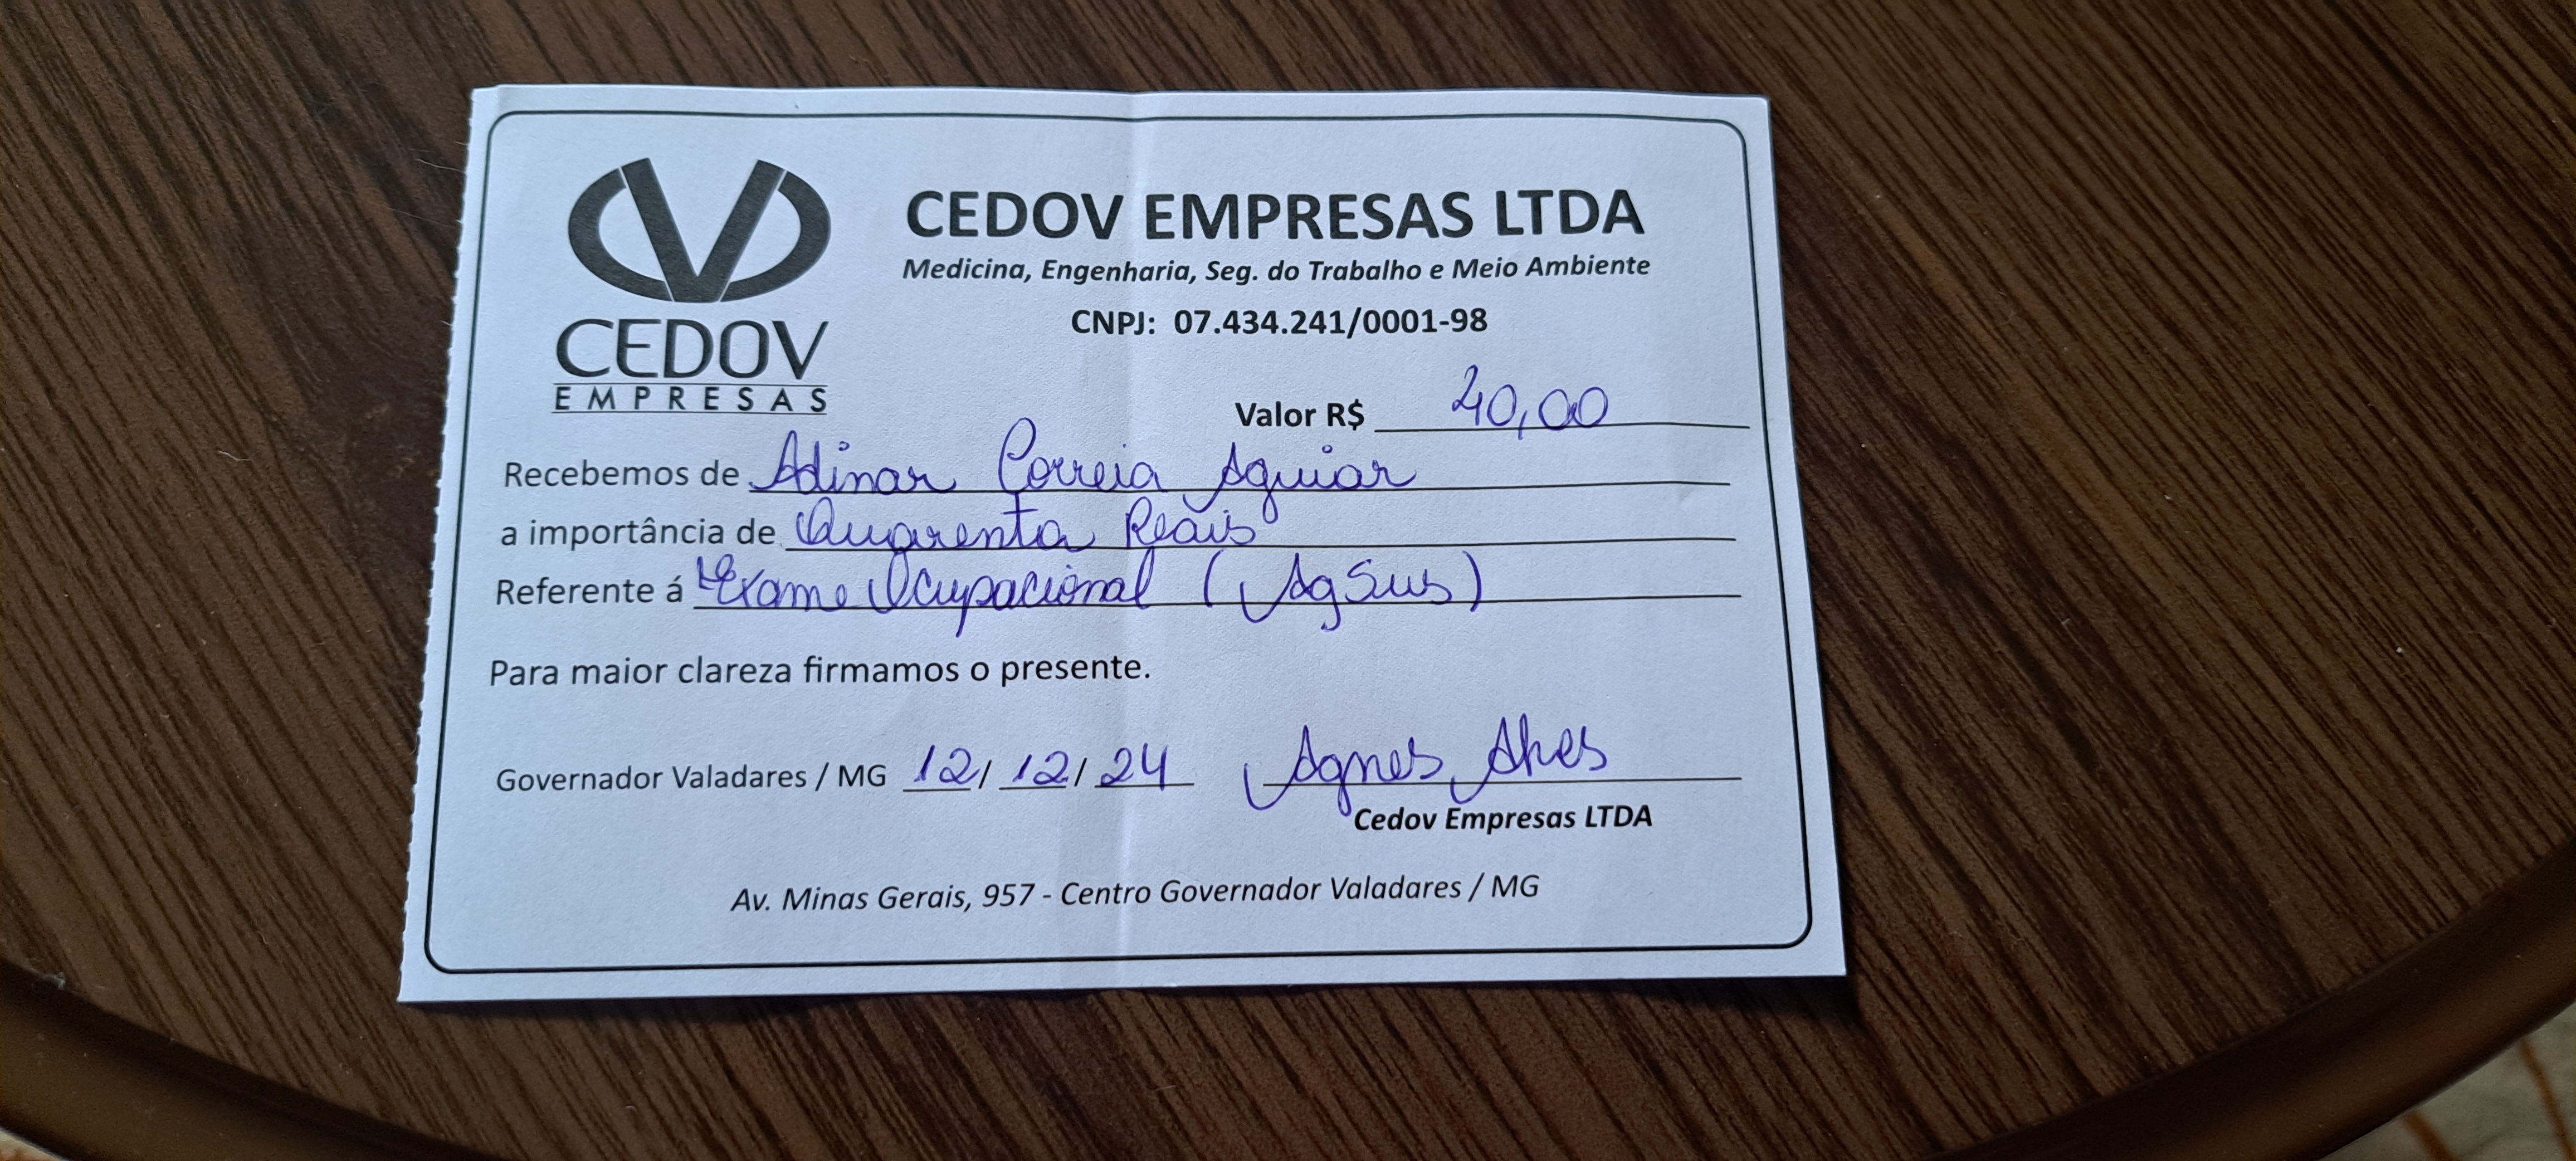 CEDOV
EMPRESAS
CEDOV EMPRESAS LTDA
Medicina, Engenharia, Seg. do Trabalho e Meio Ambiente
CNPJ: 07.434.241/0001-98
Valor R$ 40,00
Recebemos de Adinar Correia Aguiar
a importância de Quarenta Reais
Referente á Exame Ocupacional (AgSus)
Para maior clareza firmamos o presente.
Governador Valadares / MG 12/12/24 Agnes Alves
Cedov Empresas LTDA
Av. Minas Gerais, 957 - Centro Governador Valadares / MG